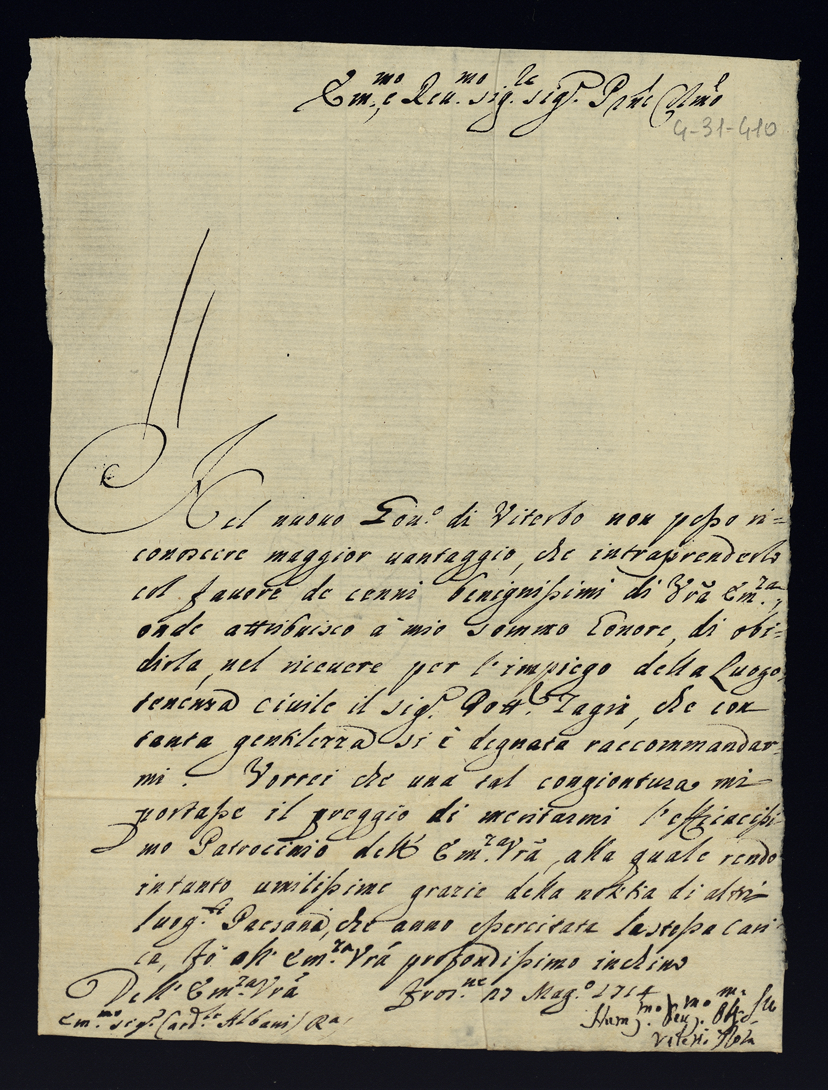 Em.mo e Reu.mo sig.re sig.r P
4-31-410
Nel nuouo Gou.o di Viterbo non posso ri=
conoscere maggior uantaggio, che intraprenderlo
col fauore de cenni benignissimi di Vrã Em.za,
onde attribuisco à mio sommo honore, di obi=
dirla, nel riceuere per l'impiego della Luogo
tenenza ciuile il sig.r Dott.r Zagri, che con
tanta gentilezza si è degnata raccommandar=
mi. Vorrei che una tal congiontura mi
portasse il preggio di meritarmi l'efficacissi
mo Patrocinio dell' Em.za Vrã, alla quale rendo
intanto umilissime grazie della notitia di altri
luog.ti Paesani, che anno esercitata la stessa Cari
ca, fò all' Em.za Vrã profondissimo inchino
Dell' Em.za Vrã Fros.ne 27 Mag.o 1714
Em.mo sig.r Card.le Albani Hum.mo Deu.mo